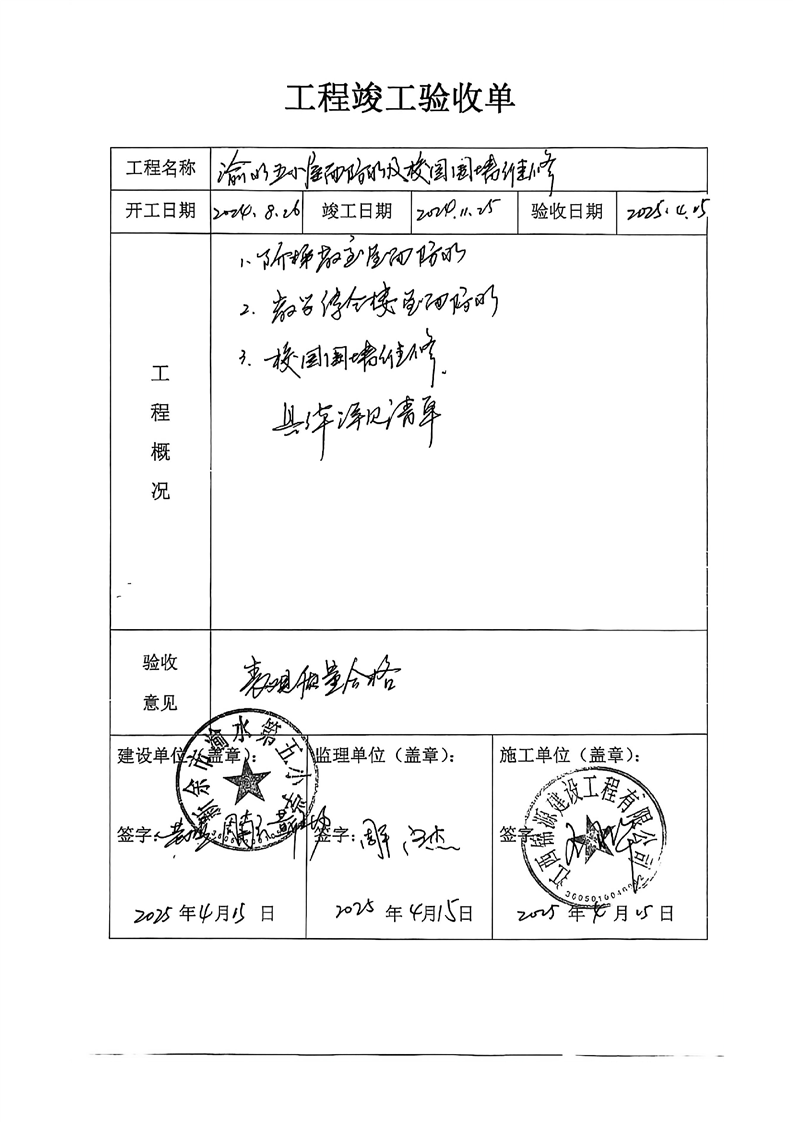 工程竣工验收单
工程名称 渝水五小屋面防水及校园围墙维修
开工日期 2024.8.26 竣工日期 2024.11.25 验收日期 2025.4.15
工程概况
1、阶梯教室屋面防水
2、教学综合楼屋面防水
3、校园围墙维修
具体详见清单
验收意见
表观质量合格
建设单位（盖章）： 监理单位（盖章）： 施工单位（盖章）：
新余市渝水第五小学
江西锦源建设工程有限公司
签字： 签字： 签字
2025年4月15日 2025年4月15日 2025年4月15日